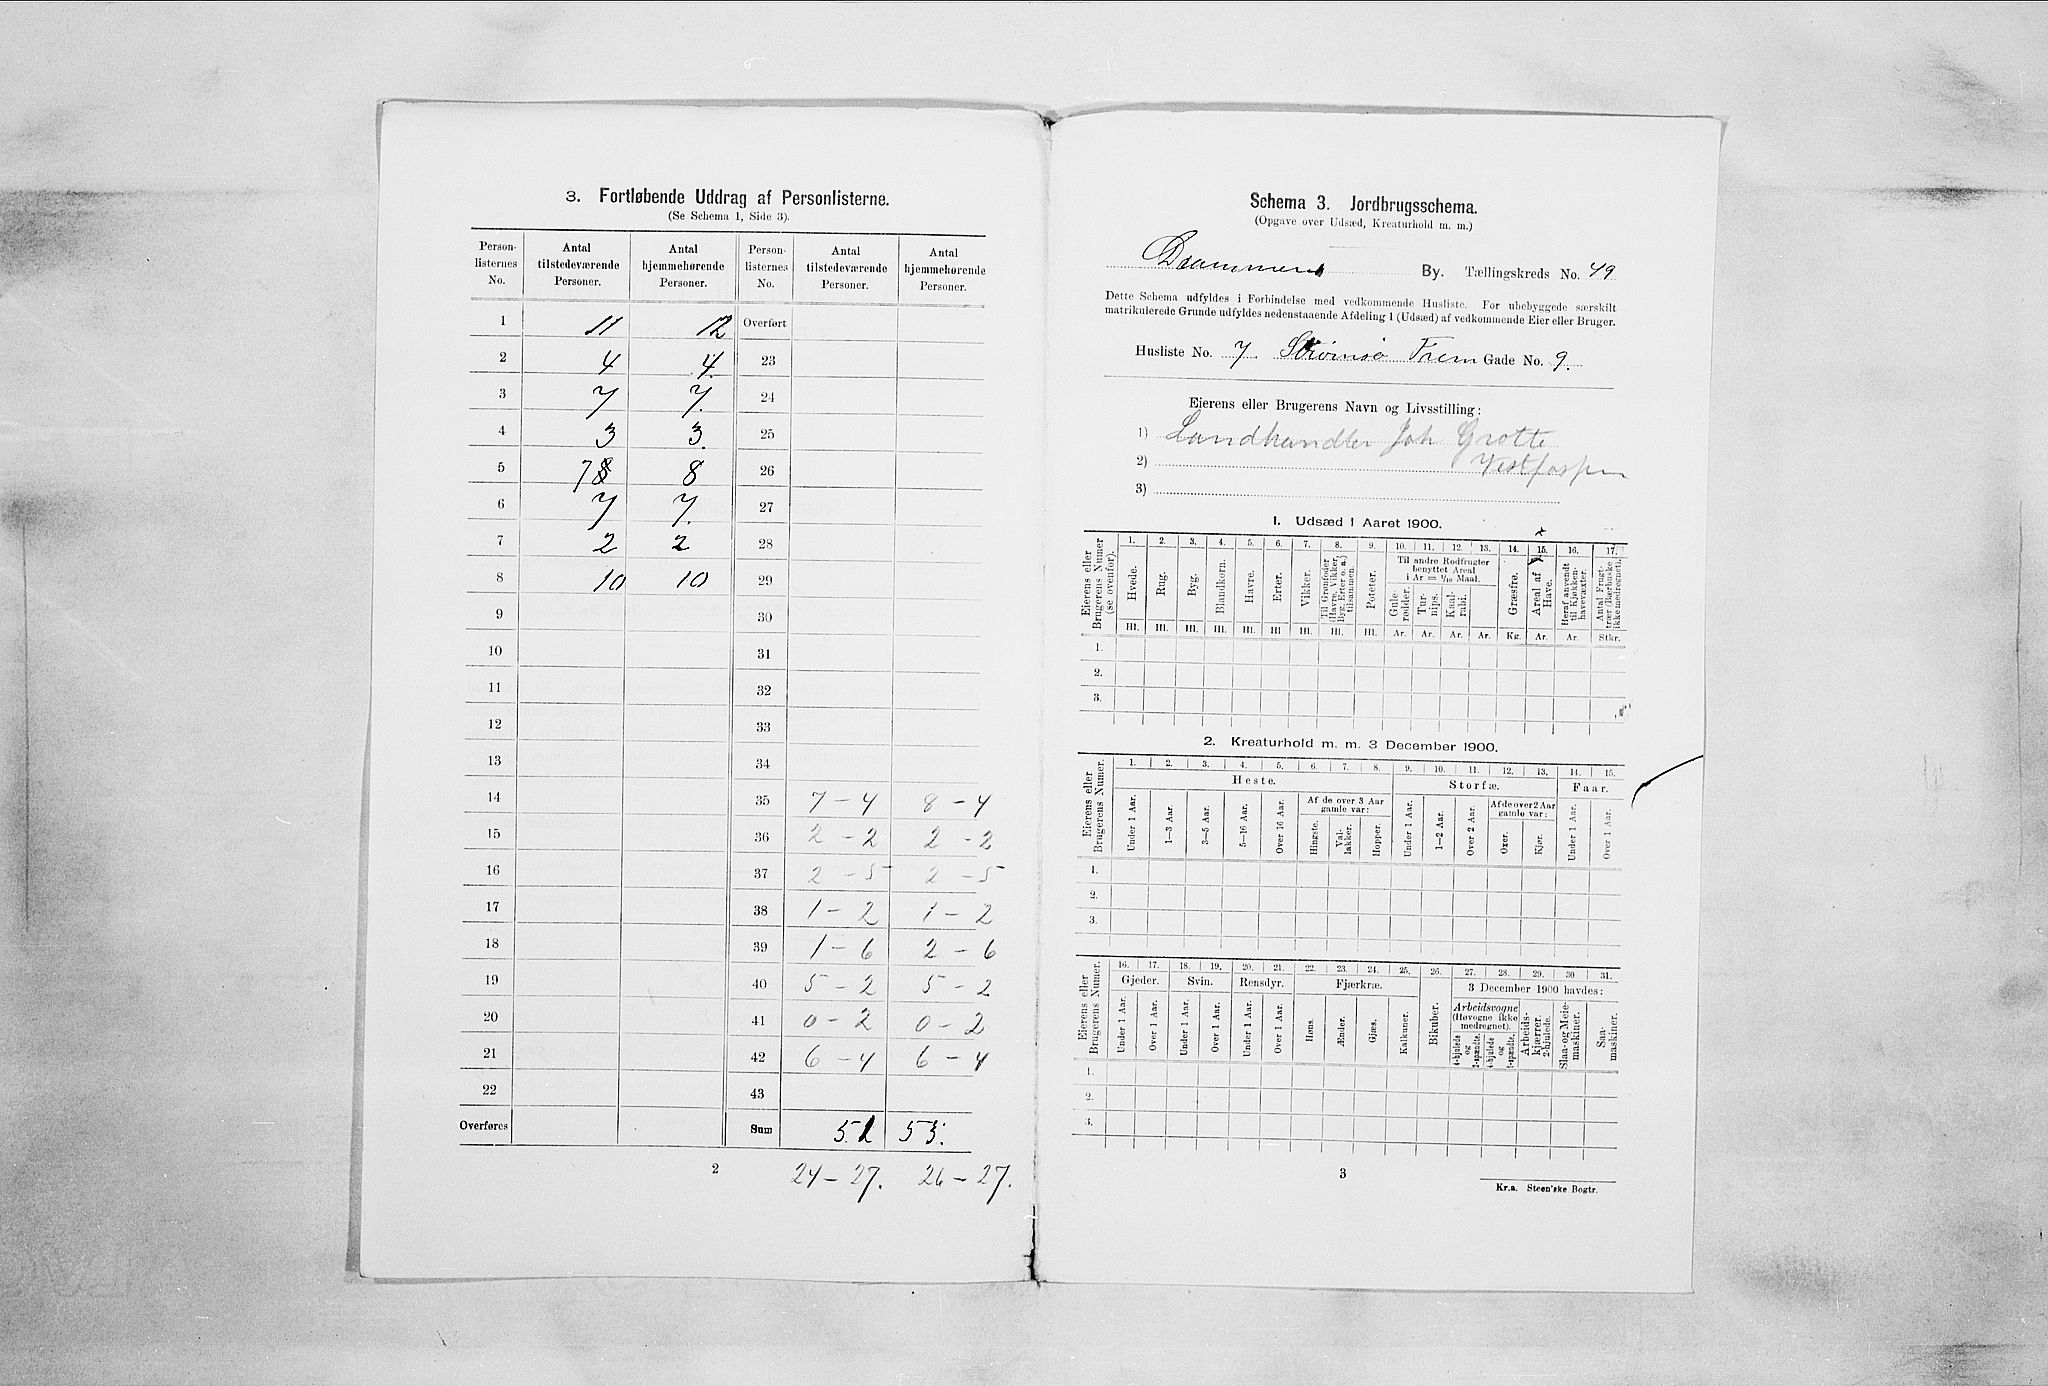 3. Fortløbende Uddrag af Personlisterne.
(Se Schema 1, Side 3).
Person-listernes No. | Antal tilstedeværende Personer. | Antal hjemmehørende Personer. | Person-listernes No. | Antal tilstedeværende Personer. | Antal hjemmehørende Personer.
1 | 11 | 12 | Overført
2 | 4 | 4. | 23
3 | 7 | 7. | 24
4 | 3 | 3. | 25
5 | 7 8 | 8 | 26
6 | 7 | 7. | 27
7 | 2 | 2 | 28
8 | 10 | 10 | 29
9 | 30
10 | 31
11 | 32
12 | 33
13 | 34
14 | 35 | 7 - 4 | 8 - 4
15 | 36 | 2 - 2 | 2 - 2
16 | 37 | 2 - 5 | 2 - 5
17 | 38 | 1 - 2 | 1 - 2
18 | 39 | 1 - 6 | 2 - 6
19 | 40 | 5 - 2 | 5 - 2
20 | 41 | 0 - 2 | 0 - 2
21 | 42 | 6 - 4 | 6 - 4
22 | 43
Overføres | Sum | 51 | 53.
2
24 - 27. 26 - 27.
Schema 3. Jordbrugsschema.
(Opgave over Udsæd, Kreaturhold m. m.)
Drammens By. Tællingskreds No. 49
Dette Schema udfyldes i Forbindelse med vedkommende Husliste. For ubebyggede særskilt
matrikulerede Grunde udfyldes nedenstaaende Afdeling 1 (Udsæd) af vedkommende Eier eller Bruger.
Husliste No. 7 Strømsø Frem Gade No. 9.
Eierens eller Brugerens Navn og Livsstilling:
1) Landhandler Joh Grotte
2) Vestfossen
3)
1. Udsæd i Aaret 1900.
x
Eierens eller Brugerens Numer (se ovenfor). | 1. | 2. | 3. | 4. | 5. | 6. | 7. | 8. | 9. | 10. | 11. | 12. | 13. | 14. | 15. | 16. | 17.
Hvede. | Rug. | Byg. | Blandkorn. | Havre. | Erter. | Vikker. | Til Grønfoder (Havre, Vikker, Byg, Erter o. a.) tilsammen. | Poteter. | Til andre Rodfrugter benyttet Areal i Ar = 1/10 Maal. | Gule-rødder. | Tur-nips. | Kaal-rabi. | Græsfrø. | Areal af Have. | Heraf anvendt til Kjøkken-havevæxter. | Antal Frugt-træer (Bærbuske ikke medregnet).
Hl. | Hl. | Hl. | Hl. | Hl. | Hl | Hl. | Hl. | Hl. | Ar. | Ar. | Ar. | Ar. | Kg. | Ar. | Ar. | Stkr.
1.
2.
3.
2. Kreaturhold m. m. 3 December 1900.
Eierens eller Brugerens Numer. | 1. | 2. | 3. | 4. | 5. | 6. | 7. | 8. | 9. | 10. | 11. | 12. | 13. | 14. | 15.
Heste. | Storfæ. | Faar.
Af de over 3 Aar gamle var: | Af de over 2 Aar gamle var:
Under 1 Aar. | 1—3 Aar. | 3—5 Aar. | 5—16 Aar. | Over 16 Aar. | Hingste. | Val-lakker. | Hopper. | Under 1 Aar. | 1—2 Aar. | Over 2 Aar. | Oxer. | Kjør. | Under 1 Aar. | Over 1 Aar.
1.
2.
3.
Eierens eller Brugerens Numer. | 16. | 17. | 18. | 19. | 20. | 21. | 22. | 23. | 24. | 25. | 26. | 27. | 28. | 29. | 30 | 31.
Gjeder. | Svin. | Rensdyr. | Fjærkræ. | Bikuber. | 3 December 1900 havdes:
Under 1 Aar. | Over 1 Aar. | Under 1 Aar. | Over 1 Aar. | Under 1 Aar. | Over 1 Aar. | Høns. | Ænder. | Gjæs. | Kalkuner. | Arbeidsvogne (Høvogne ikke medregnet). | 4-hjulede og 2-spændte. | 4-hjulede og 1-spændte. | Arbeids-kjærrer, 2-hjulede. | Slaa- og Meie-maskiner. | Saa-maskiner.
1.
2.
3.
3
Kr.a. Steen'ske Bogtr.